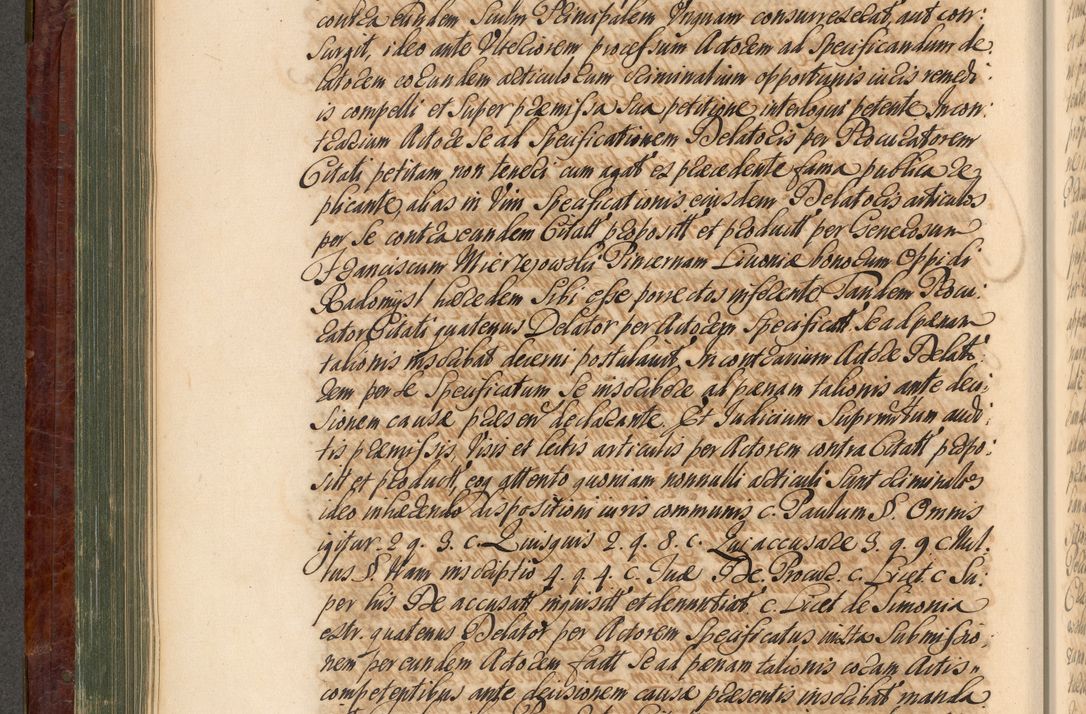 contra eundem Sculm Principalem Quynam consurrexerat, aut con:
surgit, ideo ante Ulteriorem processum Actorem ad Specificandum de:
latorem eorundem articulorum criminalium opportunis iuris remedi:
is compelli et super praemissa sua petitione interloqui petente. In con:
trarium Actore se ad Specificationem Delatoris per Procuratorem
Citati petitam non teneri cum agat ex praecedente fama publica re,
plicante, alias in Vim Specificationis eiusdem Delatoris articulos
per se contra eundem Citatt propositt et productt per Generosum
Franciscum Mierzejowski Pincernam Livoniae bonorum Oppidi
Radomysl haeredem Sibi esse porrectos inferente. Tandem Procu:
rator Citati quatenus Delator per Actorem Specificatt se ad paenam
talionis inscribat decerni postulavit. In contrarium Actore Delato:
rem per se Specificatum se inscribere ad paenam talionis ante deci:
sionem causae praesen declarante. Et Judicium Suprmttum audi:
tis praemissis, Visis et lectis articulis per Actorem contra Citatt propo:
sitt et productt, eoq attento quoniam nonnulli articuli sunt criminales
ideo inhaerendo dispositioni iuris communis c. Paulum §. Omnis
igitur. 2 q. 3. c. Quisquis 2. q. 8. c. Qui accusare 3. q. 9. c Mul:
tus §. Nam inscriptio 4. q. 4. c. Tuae De. Procur. c. Licet. c Su:
per his De accusatt inquisitt et denuntiatt c. Licet de Simonia
extr. quatenus Delator per Actorem Specificatus iuxta Submissio:
nem per eundem Actorem fact se ad paenam talionis coram Actis
competentibus ante decisionem causae praesentis inscribat manda